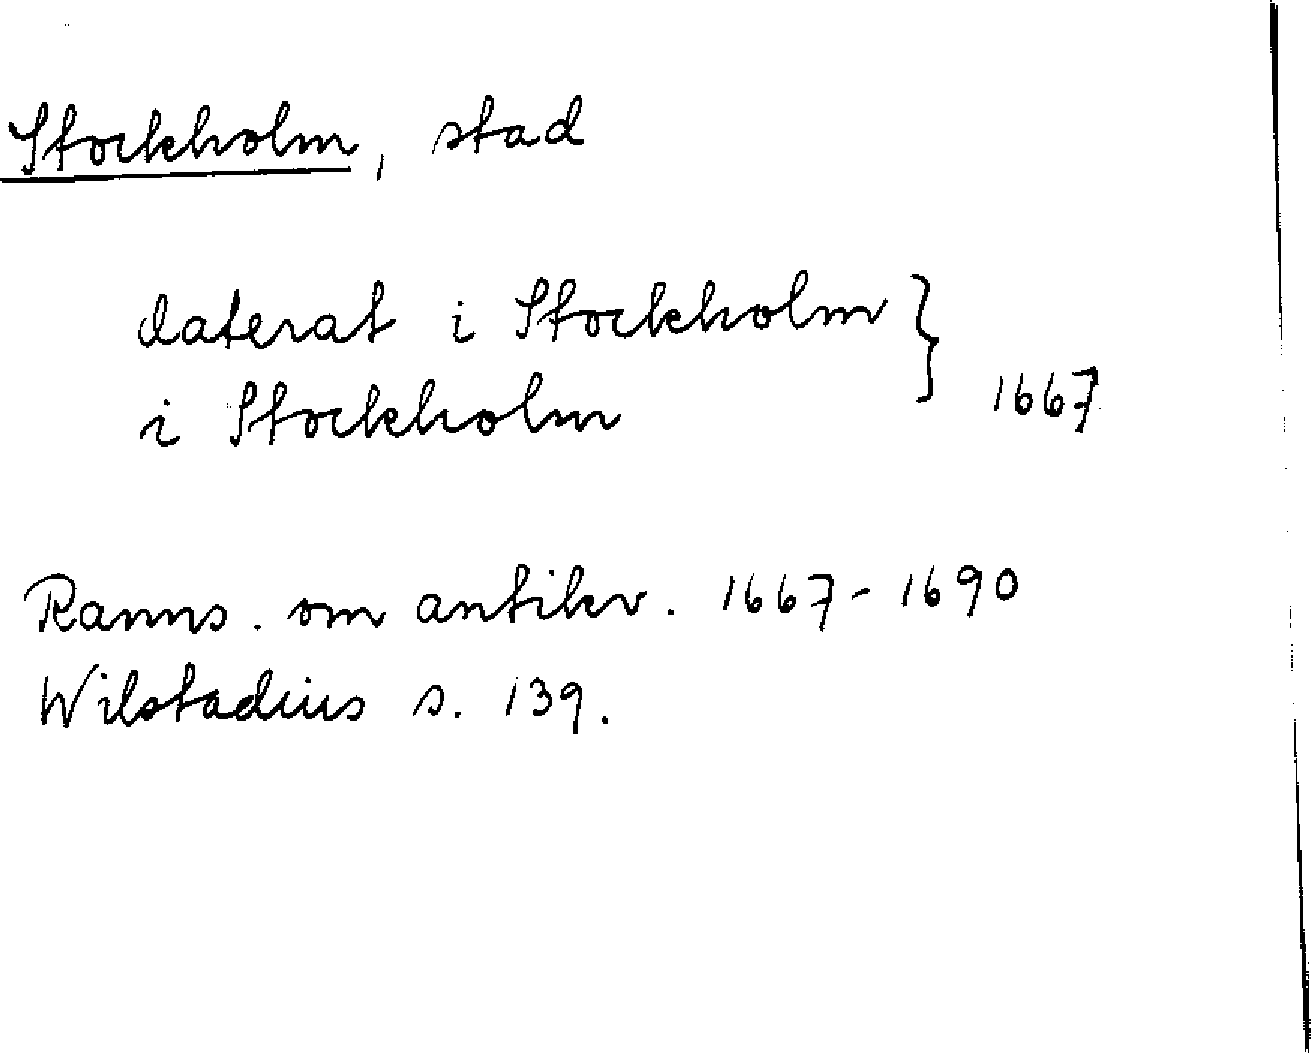 Stockholm, stad
daterat i Stockholm }
i Stockholm } 1667
Ranns. om antikv. 1667-1690
Wilstadius s. 139.